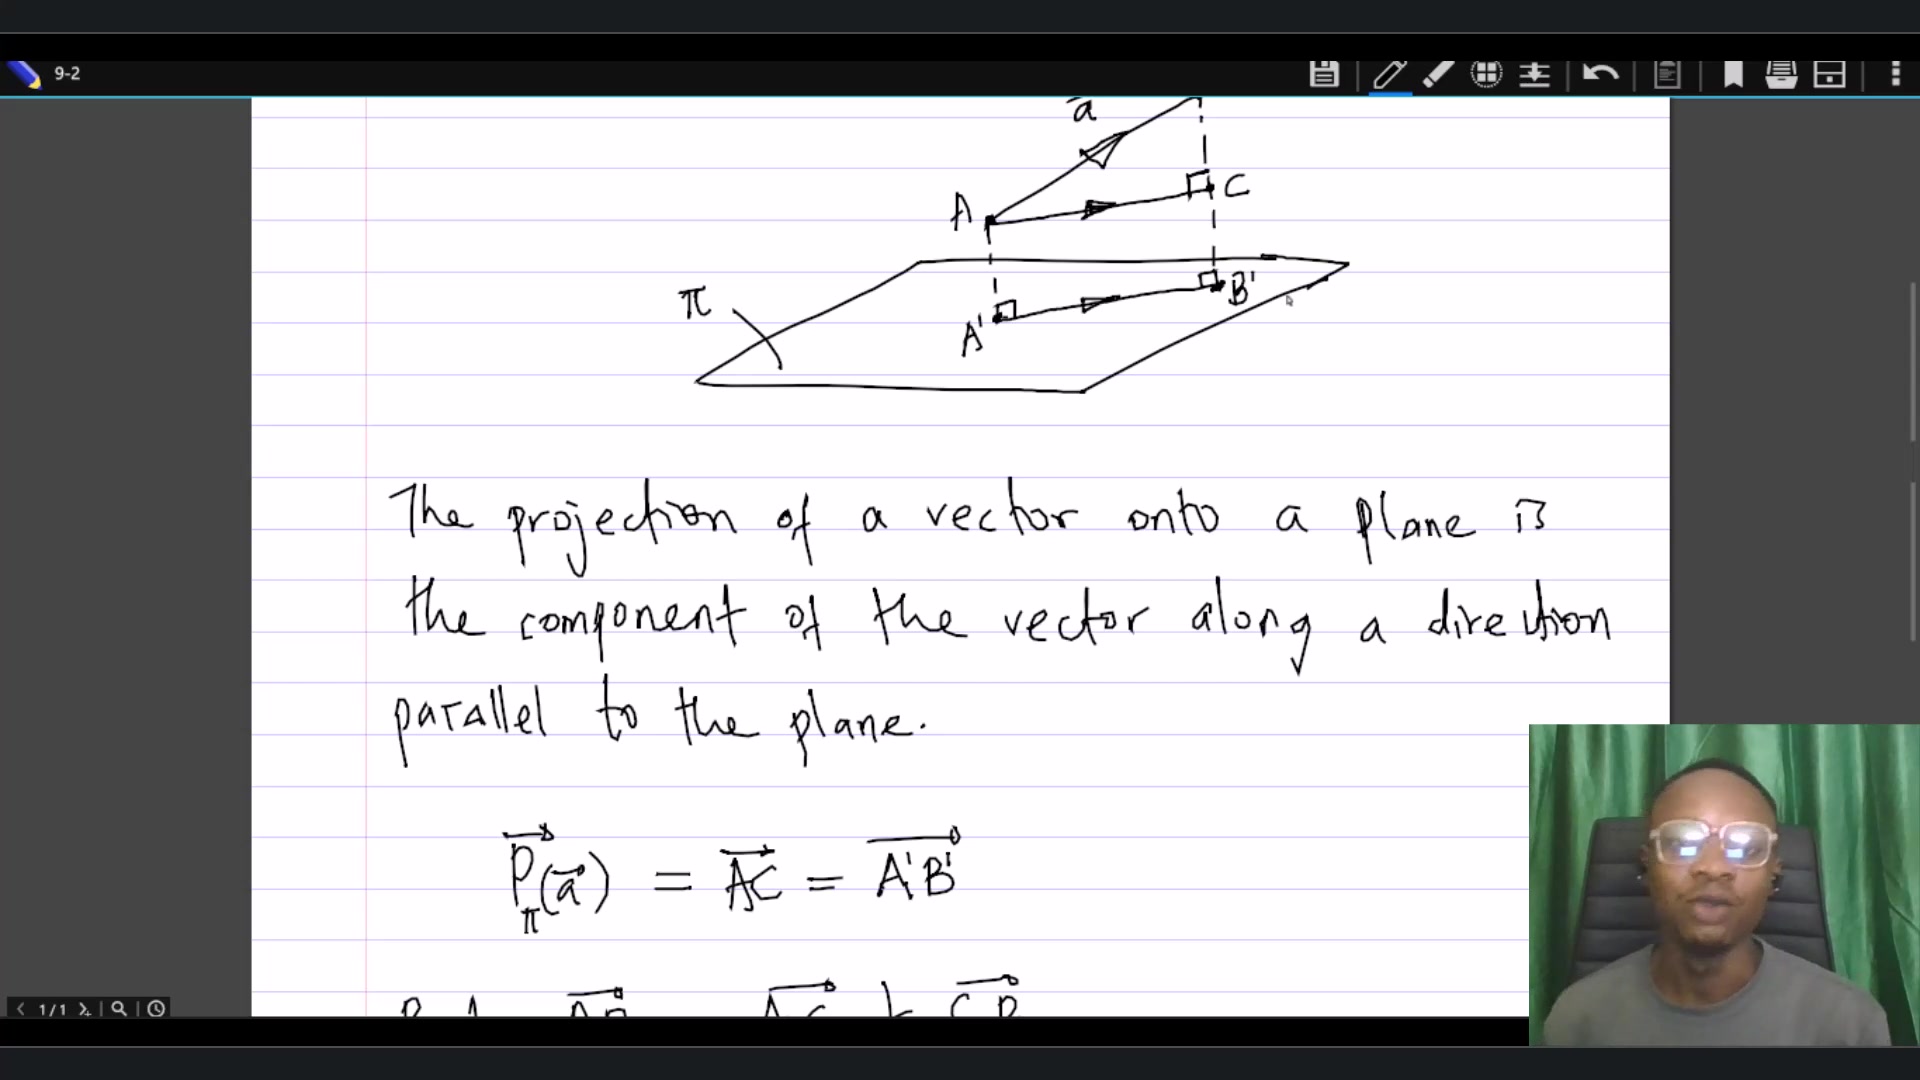 9-2
a
A
C
π
B'
A'
The projection of a vector onto a plane is
the component of the vector along a direction
parallel to the plane.
P_π(a⃗) = AC = A'B'
1/1